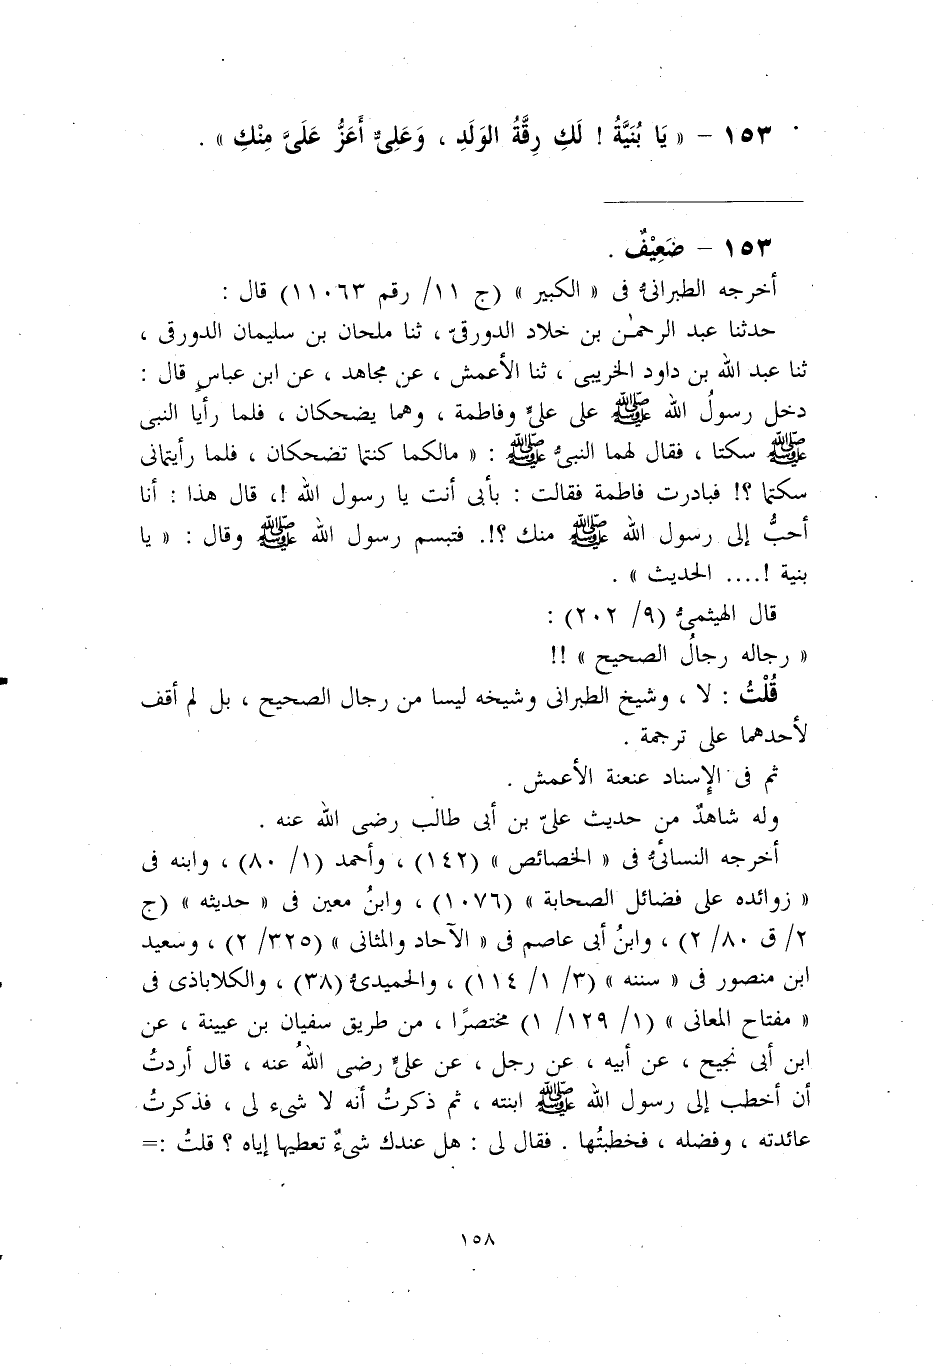 ١٥٣ – « يَا بُنَيَّةُ ! لَكِ رِقَّةُ الوَلَدِ ، وَعَلِىٌّ أَعَزُّ عَلَىَّ مِنْكِ » .
١٥٣ – ضَعِيْفٌ .
أخرجه الطبرانىُّ فى « الكبير » (ج ١١/ رقم ١١٠٦٣) قال :
حدثنا عبد الرحمـٰن بن خلاد الدورقىّ ، ثنا ملحان بن سليمان الدورقى ،
ثنا عبد الله بن داود الخريبى ، ثنا الأعمش ، عن مجاهد ، عن ابن عباسٍ قال :
دخل رسولُ الله ﷺ على علىٍّ وفاطمة ، وهما يضحكان ، فلما رأيا النبى
ﷺ سكتا ، فقال لهما النبىُّ ﷺ : « مالكما كنتما تضحكان ، فلما رأيتمانى
سكتما ؟! فبادرت فاطمة فقالت : بأبى أنت يا رسول الله !، قال هذا : أنا
أحبُّ إلى رسول الله ﷺ منك ؟!. فتبسم رسول الله ﷺ وقال : « يا
بنية !.... الحديث » .
قال الهيثمىُّ (٩/ ٢٠٢) :
« رجاله رجالُ الصحيح » !!
قُلْتُ : لا ، وشيخ الطبرانى وشيخه ليسا من رجال الصحيح ، بل لم أقف
لأحدهما على ترجمة .
ثم فى الإِسناد عنعنة الأعمش .
وله شاهدٌ من حديث علىّ بن أبى طالب رضى الله عنه .
أخرجه النسائىُّ فى « الخصائص » (١٤٢) ، وأحمد (١/ ٨٠) ، وابنه فى
« زوائده على فضائل الصحابة » (١٠٧٦) ، وابنُ معين فى « حديثه » (ج
٢/ ق ٨٠/ ٢) ، وابنُ أبى عاصم فى « الآحاد والمثانى » (٣٢٥/ ٢) ، وسعيد
ابن منصور فى « سننه » (٣/ ١/ ١١٤) ، والحميدىُّ (٣٨) ، والكلاباذى فى
« مفتاح المعانى » (١/ ١٢٩/ ١) مختصرًا ، من طريق سفيان بن عيينة ، عن
ابن أبى نجيح ، عن أبيه ، عن رجل ، عن علىٍّ رضى اللهُ عنه ، قال أردتُ
أن أخطب إلى رسول الله ﷺ ابنته ، ثم ذكرتُ أنه لا شىء لى ، فذكرتُ
عائدته ، وفضله ، فخطبتُها . فقال لى : هل عندك شىءٌ تعطيها إياه ؟ قلتُ :=
١٥٨